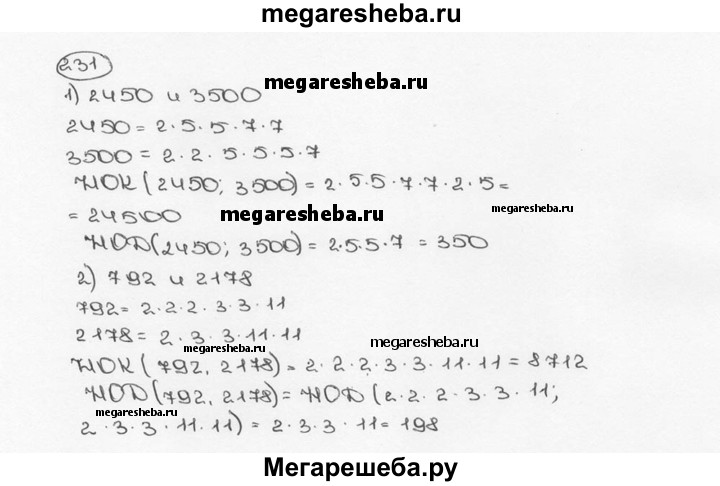 megaresheba.ru
231
megaresheba.ru
1) 2450 и 3500
2450 = 2·5·5·7·7
3500 = 2·2·5·5·5·7
НОК (2450; 3500) = 2·5·5·7·7·2·5 =
megaresheba.ru
= 24500
megaresheba.ru
НОД(2450; 3500) = 2·5·5·7 = 350
2) 792 и 2178
792 = 2·2·2·3·3·11
2178 = 2·3·3·11·11
megaresheba.ru
megaresheba.ru
НОК (792, 2178) = 2·2·2·3·3·11·11 = 8712
НОД(792, 2178) = НОД (2·2·2·3·3·11;
megaresheba.ru
2·3·3·11·11) = 2·3·3·11 = 198
Мегарешеба.ру